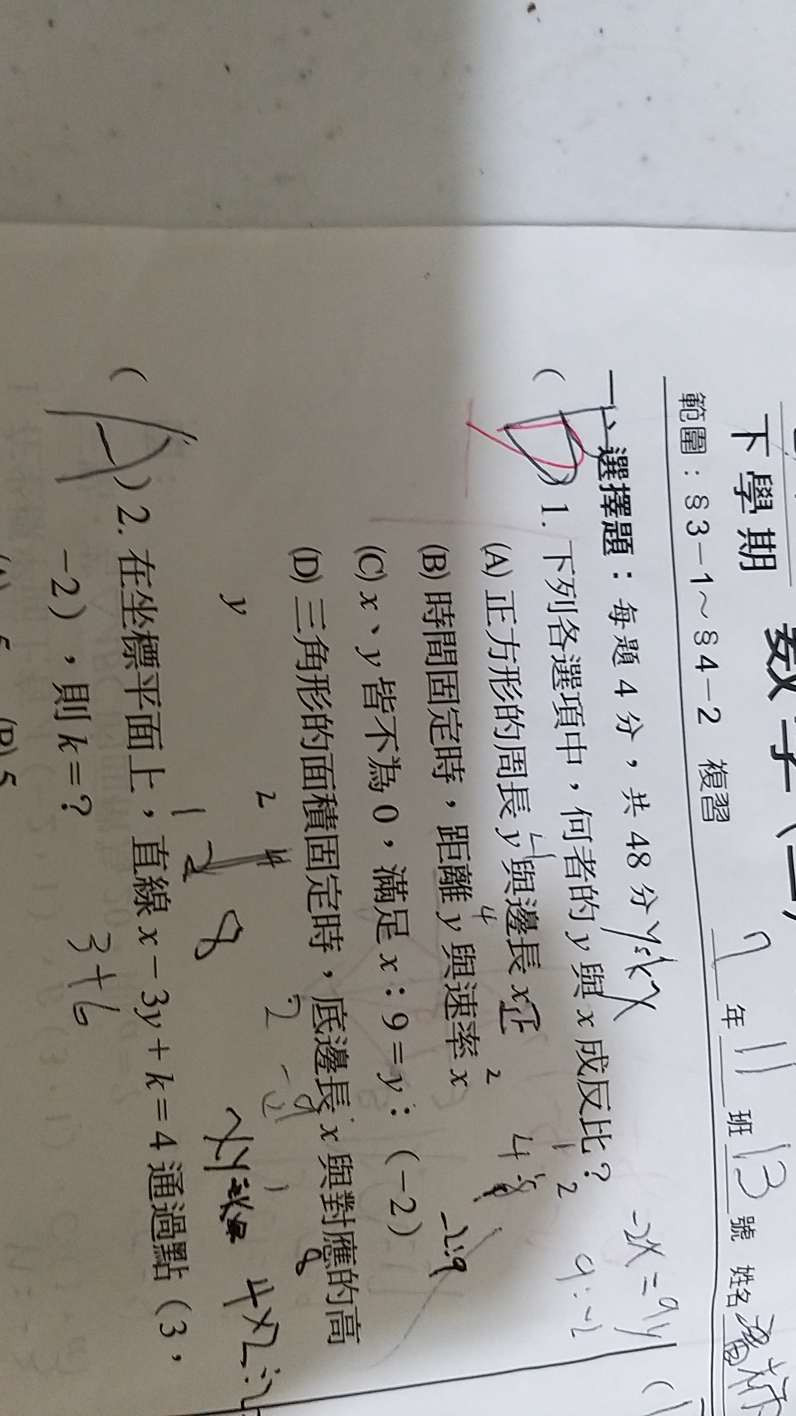 下學期 數學
範圍：§3-1～§4-2 複習 7年11班13號 姓名
一、選擇題：每題 4 分，共 48 分
y=kx
-2x=9y
(D) 1. 下列各選項中，何者的 y 與 x 成反比？
9:-2
(A) 正方形的周長 y 與邊長 x 正
(B) 時間固定時，距離 y 與速率 x
-2:9
(C) x、y 皆不為 0，滿足 x：9＝y：(－2)
(D) 三角形的面積固定時，底邊長 x 與對應的高
y
8
4×2÷2
(A) 2. 在坐標平面上，直線 x－3y＋k＝4 通過點（3，
－2），則 k＝？
3+6
(B) 5